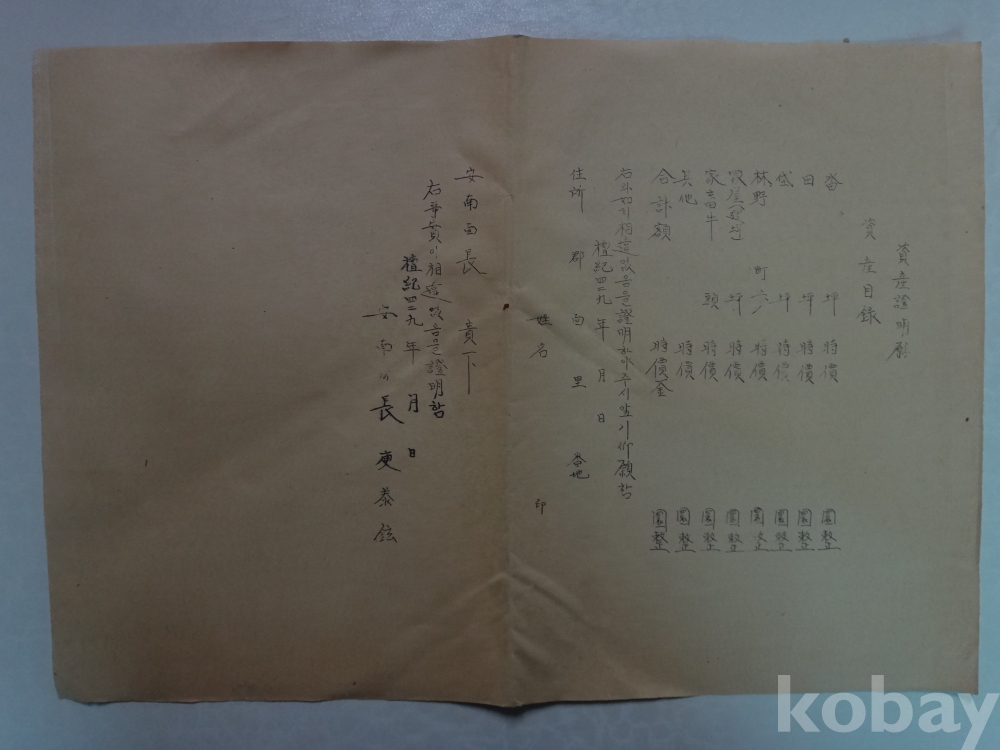 資産證明願
資産目錄
畓 坪 時價 圜整
田 坪 時價 圜整
垈 坪 時價 圜整
林野 町 時價 圜整
家屋 坪 時價 圜整
家畜牛 頭 時價 圜整
其他 時價 圜整
合計額 時價金 圜整
右와如히相違없음을證明하야주시압기仰願함
檀紀四二九 年 月 日
住所 郡 面 里 番地
姓名 印
安南面長 貴下
右事實이相違없음을證明함
檀紀四二九 年 月 日
安南面長 泰鉉
kobay